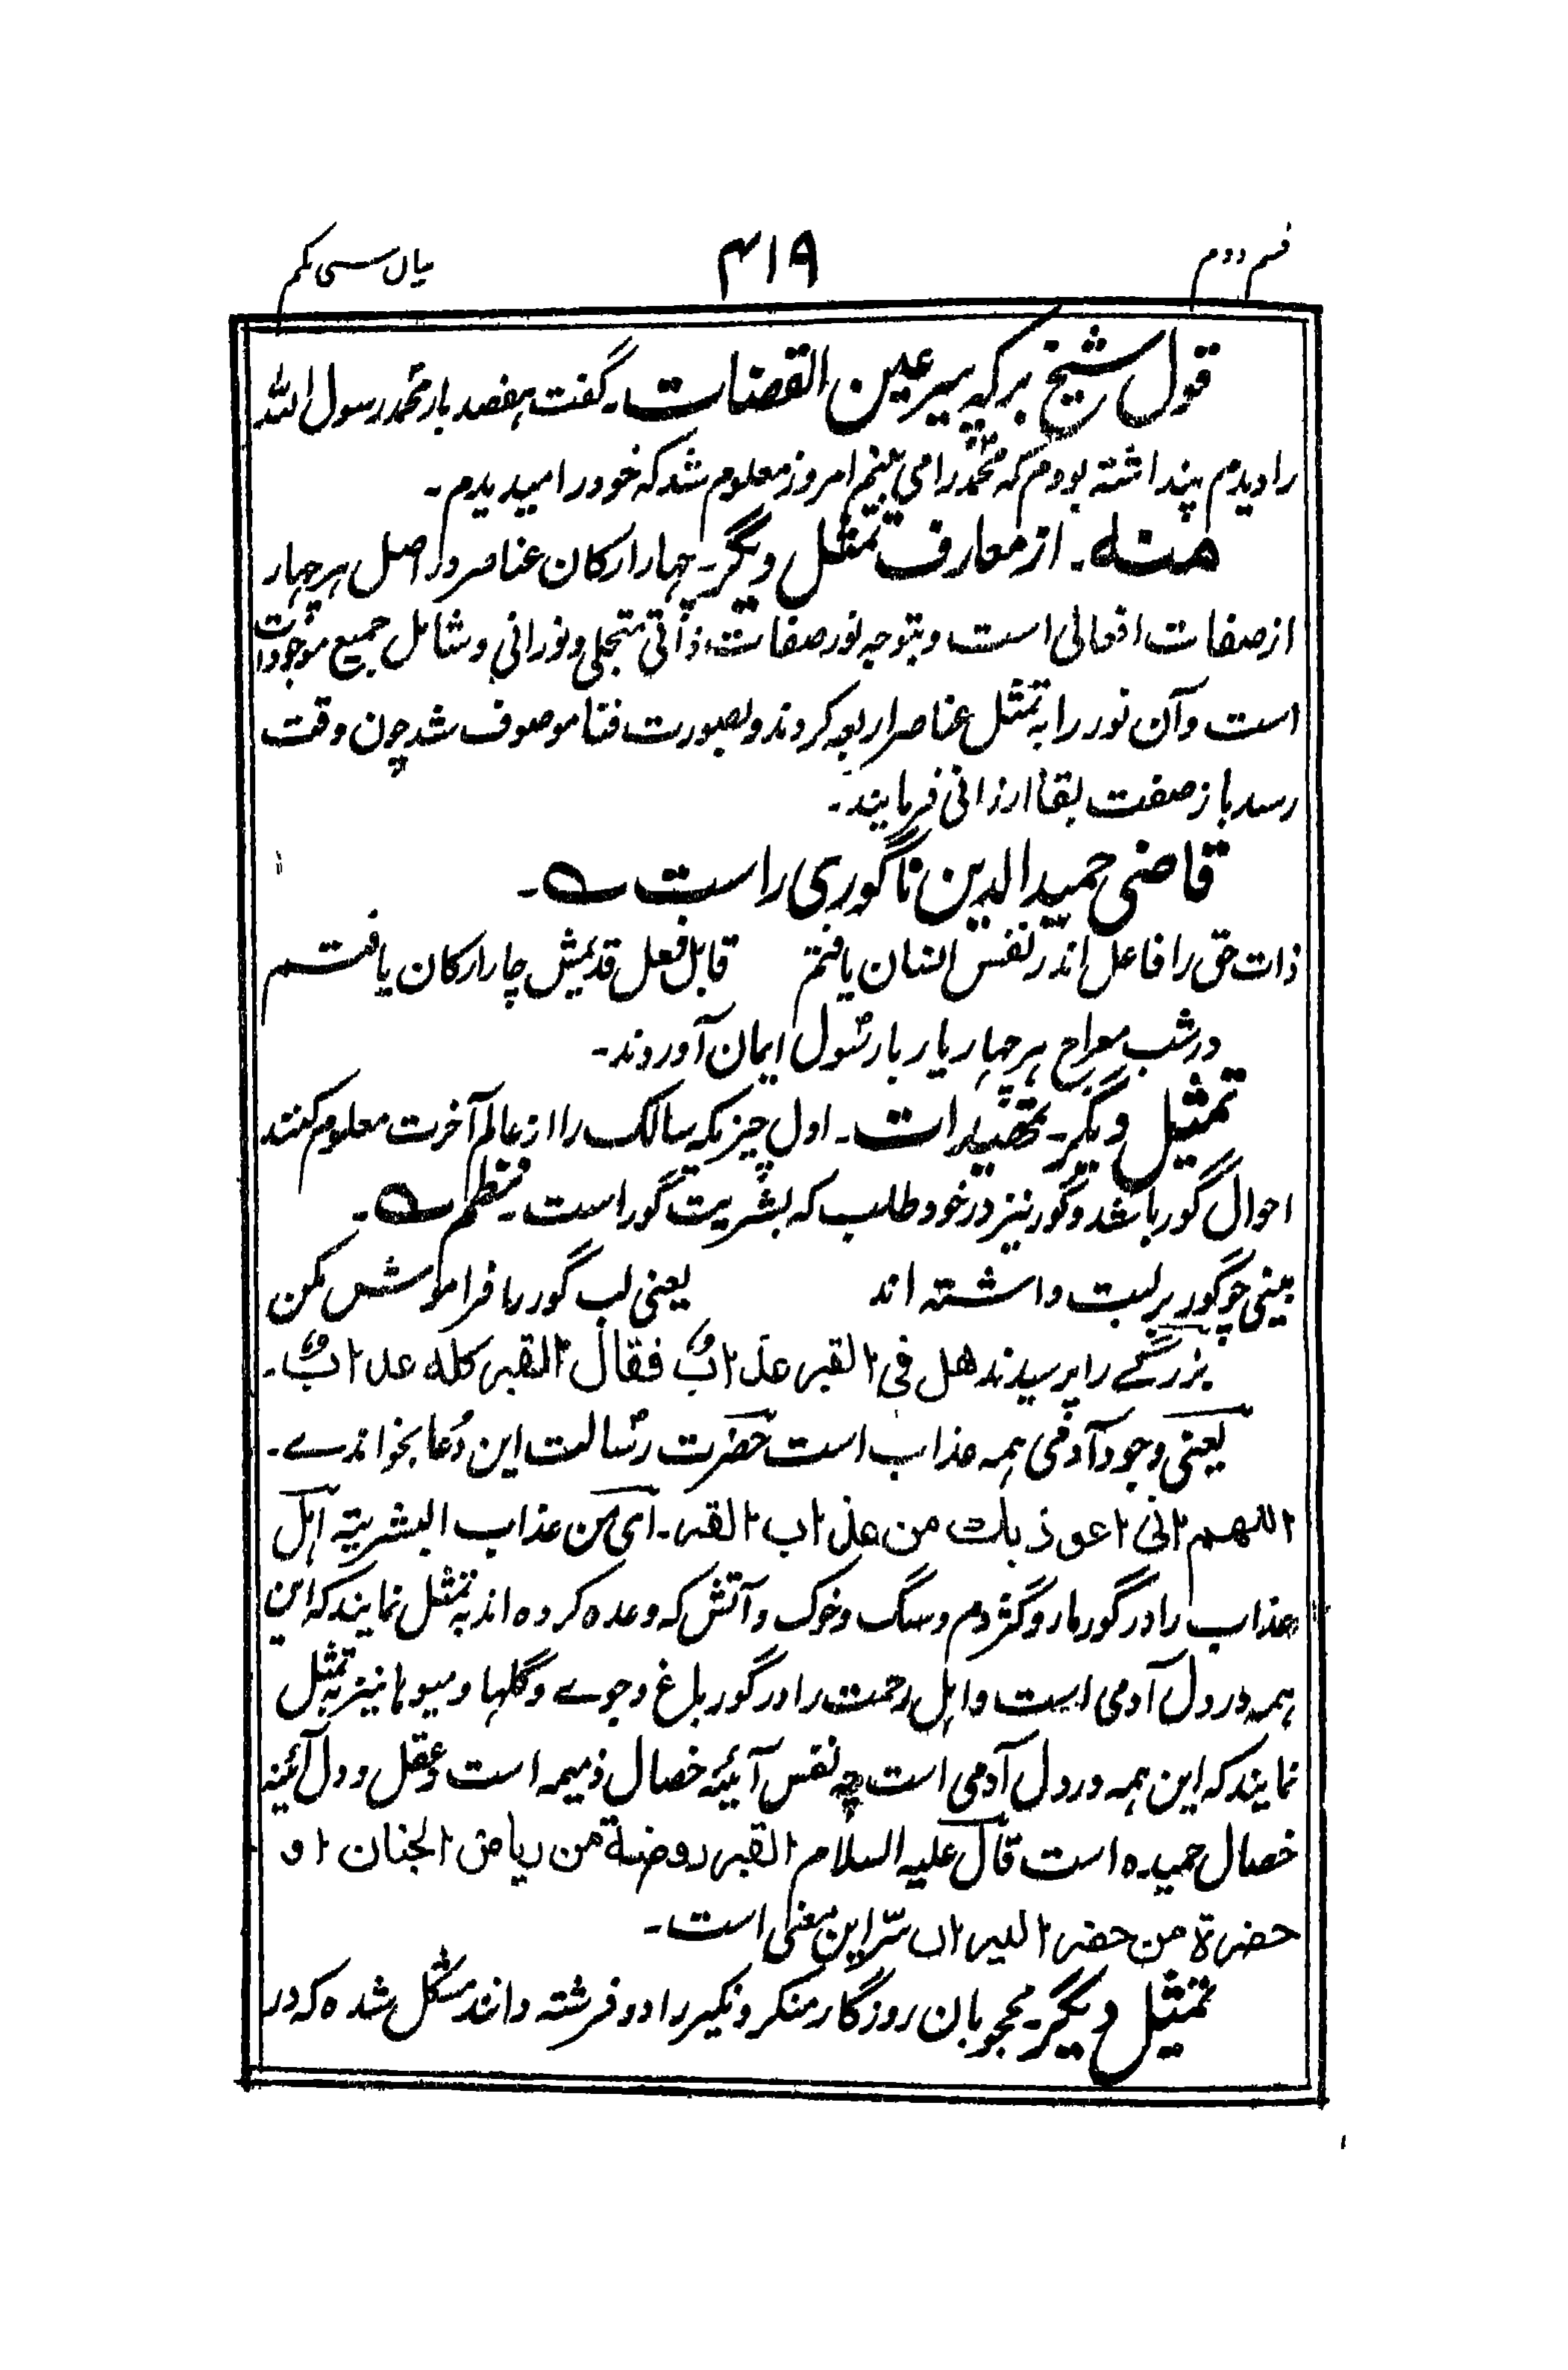 قسم دوم
۴۱۹
بیان سی یکم
قول شیخ برکه پیر عین القضات۔ گفت هفصد بار محمد رسول الله
را دیدم پنداشته بودم که محمد را می بینم امروز معلوم شد که خود را میدیدم۔
منه۔ از معارف تمثل دیگر۔ چهار ارکان عناصر در اصل هر چهار
از صفات افعالی است و بتوجه نور صفات ذاتی متجلی و نورانی و شامل جمیع موجودات
است و آن نور را به تمثل عناصر اربعه کردند و بصورت فنا موصوف شد چون وقت
رسد باز صفت بقا ارزانی فرمایند۔
قاضی حمید الدین ناگوری راست ؎۔
ذات حق را فاعل اندر نفس انسان یافتم قابل فعل قدیمش چار ارکان یافتم
در شب معراج هر چهار یار با رسول ایمان آوردند۔
تمثیل دیگر۔ تمهیدات۔ اول چیزیکه سالک را از عالم آخرت معلوم کنند
احوال گور باشد و گور نیز در خود طلب که بشریت گور است۔ نظم ؎۔
بینی چو گور بر لبت داشته اند یعنی لب گور را فراموش مکن
بزرگے را پرسیدند هل فی القبر عذابٌ فقال القبر کله عذابٌ۔
یعنی وجود آدمی همه عذاب است حضرت رسالت این دعا بخواندے۔
اللهم انی اعوذ بك من عذاب القبر۔ ای من عذاب البشریة اهل
عذاب را در گور مار و گژدم و سگ و خوک و آتش که وعده کرده اند به تمثل نمایند که این
همه در دل آدمی است و اهل رحمت را در گور باغ و جوے و گلها و میوها نیز به تمثل
نمایند که این همه در دل آدمی است چه نفس آئینه خصال ذمیمه است و عقل و دل آئینه
خصال حمیده است قال علیه السلام القبر روضة من ریاض الجنان او
حضرة من حضر النیران سرّ این معنی است۔
تمثیل دیگر۔ محجوبان روزگار منکر و نکیر را دو فرشته دانند مشکل شده که در